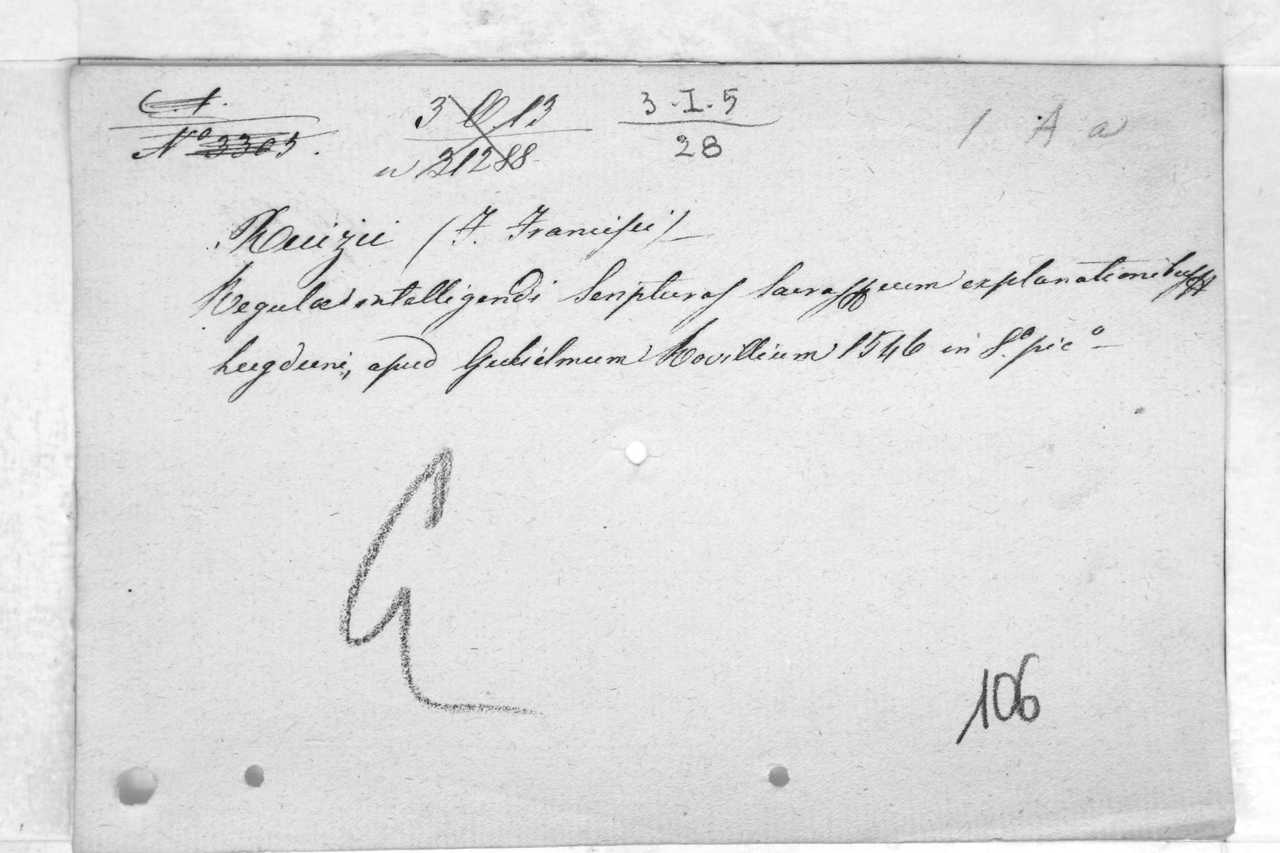 C. 1.
Nº 3305.
3 Q 13
n 31288
3.I.5
28
1 A a
Ruizii (F. Francisci)
Regulae intelligendi Scripturas Sacras cum explanationibus
Lugduni, apud Gulielmum Rovillium 1546 in 8.º pic.º
106